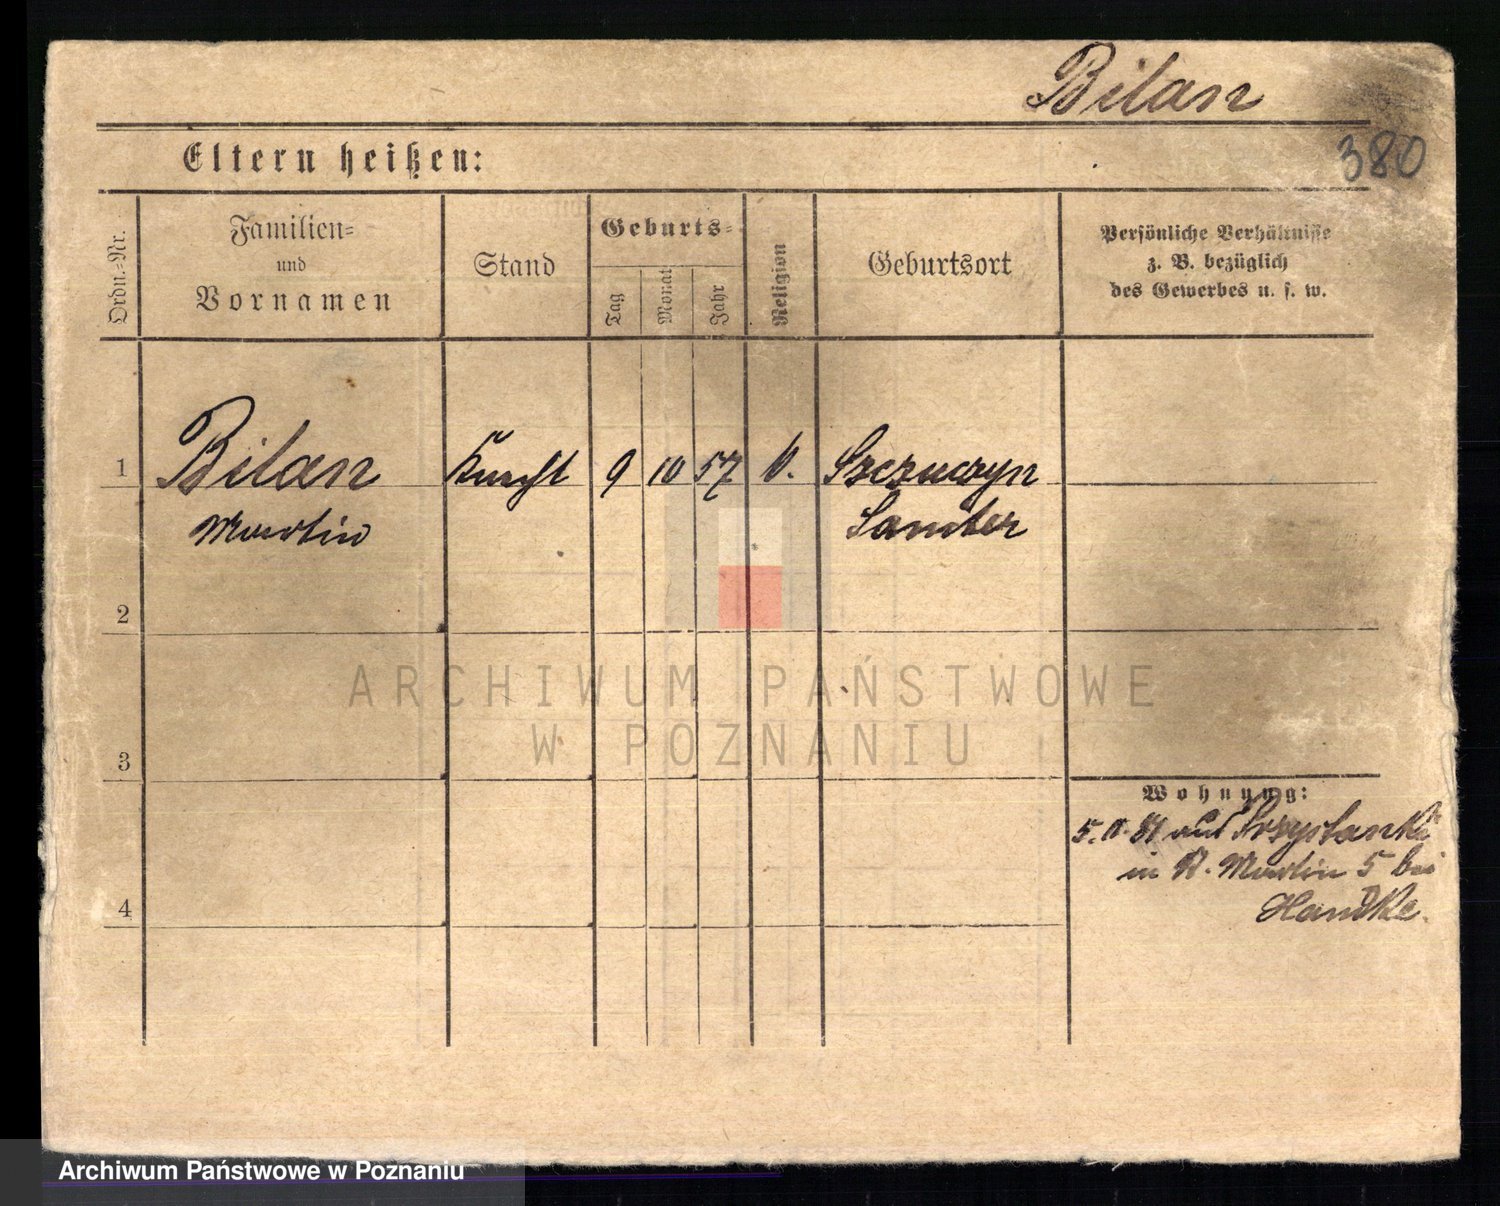 Bilan
380
Eltern heißen:
Ordn.-Nr.
Familien-
und
Vornamen
Stand
Geburts-
Tag
Monat
Jahr
Religion
Geburtsort
Persönliche Verhältnisse
z. B. bezüglich
des Gewerbes u. s. w.
1 Bilan Knecht 9 10 57 Szczuczyn
Martin Samter
2
ARCHIWUM PAŃSTWOWE
W POZNANIU
3
Wohnung:
5. 81 aus
in Martin 5 bei
Handke.
4
Archiwum Państwowe w Poznaniu